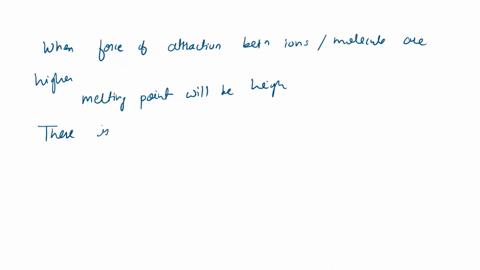 When force of attraction betn ions / molecule are
higher
melting point will be heigh
There is